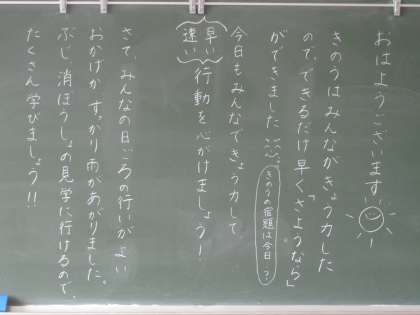 おはようございます
きのうはみんながきょう力した
ので、できるだけ早く「さようなら」
ができました。
きのうの宿題は今日?
今日もみんなできょう力して
早い
速い
行動を心がけましょう!
さて、みんなの日ごろの行いがよい
おかげか、すっかり雨があがりました。
ぶじ、消ぼうしょの見学に行けるので、
たくさん学びましょう!!